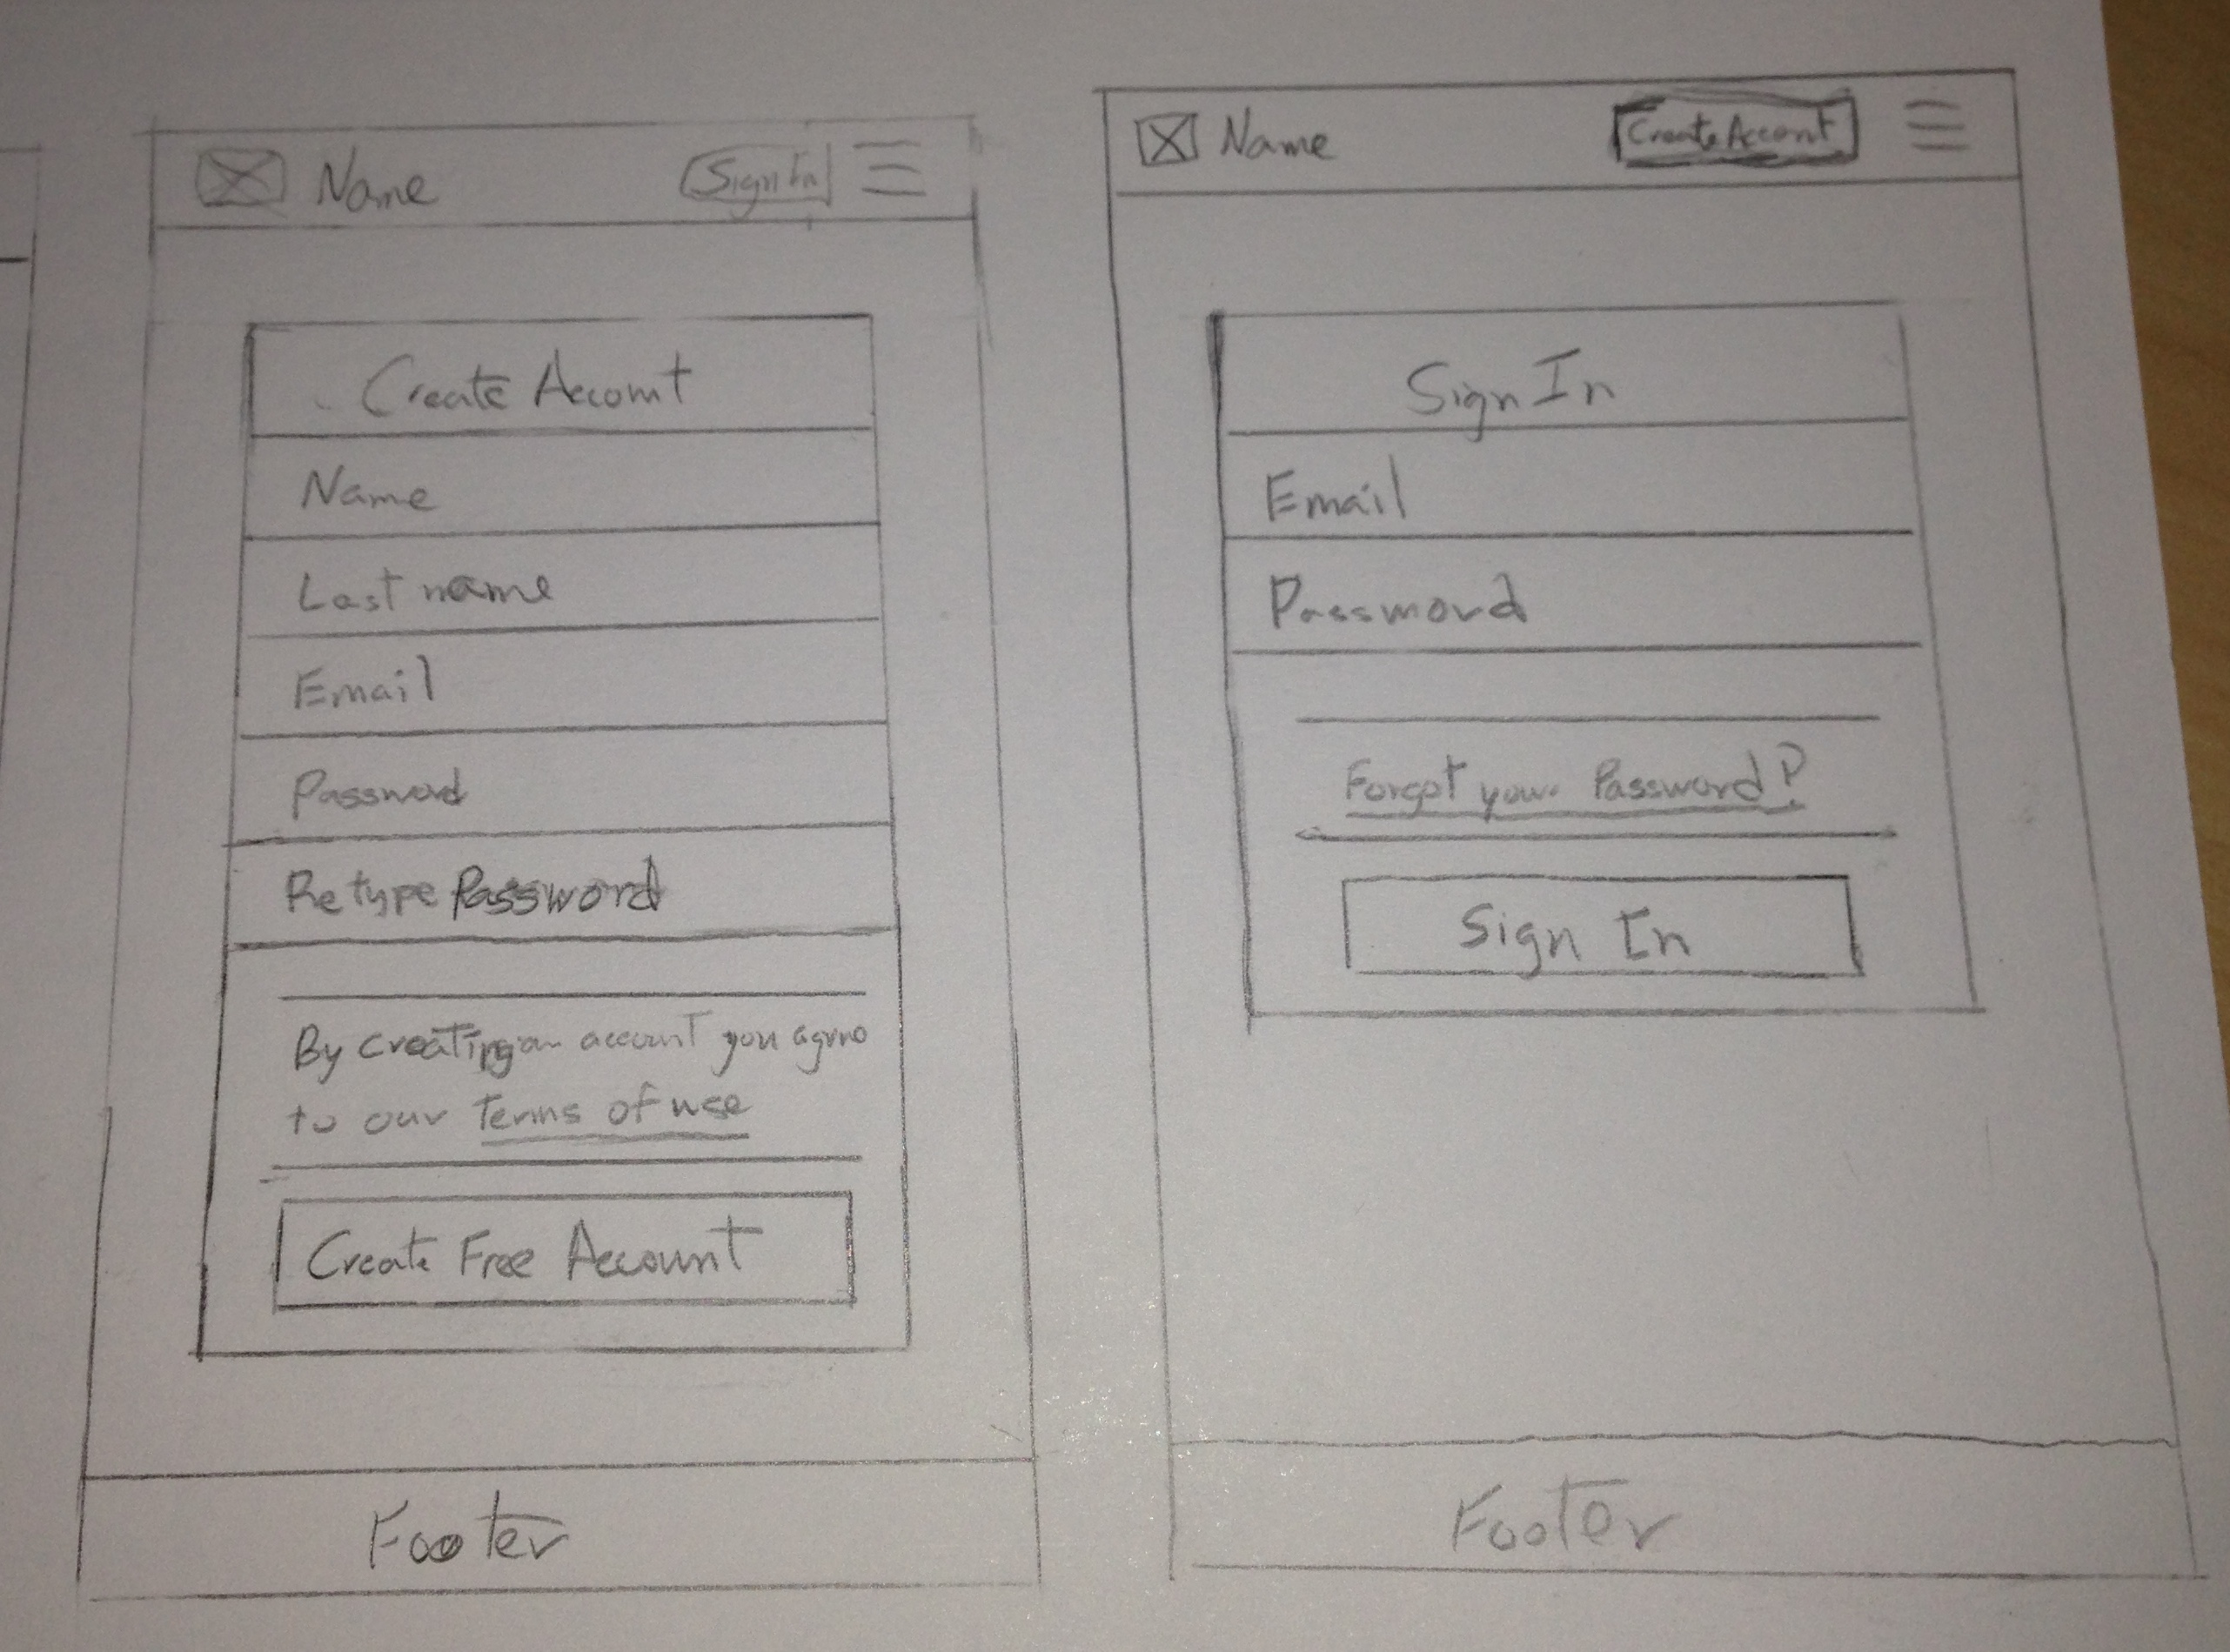 Name
Sign In
Create Account
Name
Last name
Email
Password
Retype Password
By creating an account you agree
to our terms of use
Create Free Account
Footer
Name
Create Account
Sign In
Email
Password
Forgot your Password?
Sign In
Footer